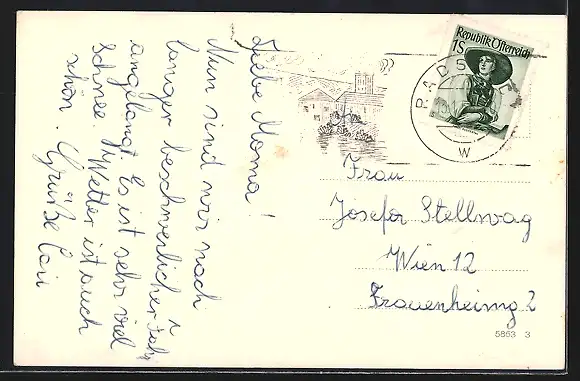 Liebe Moma!
Nun sind wir nach
langer beschwerlicher Fahrt
angelangt. Es ist sehr viel
Schnee. Wetter ist auch
schön. Grüße
Republik Österreich
1S
RADS
W
Frau
Josefa Stellwag
Wien 12
Frauenheimg 2
5863 3